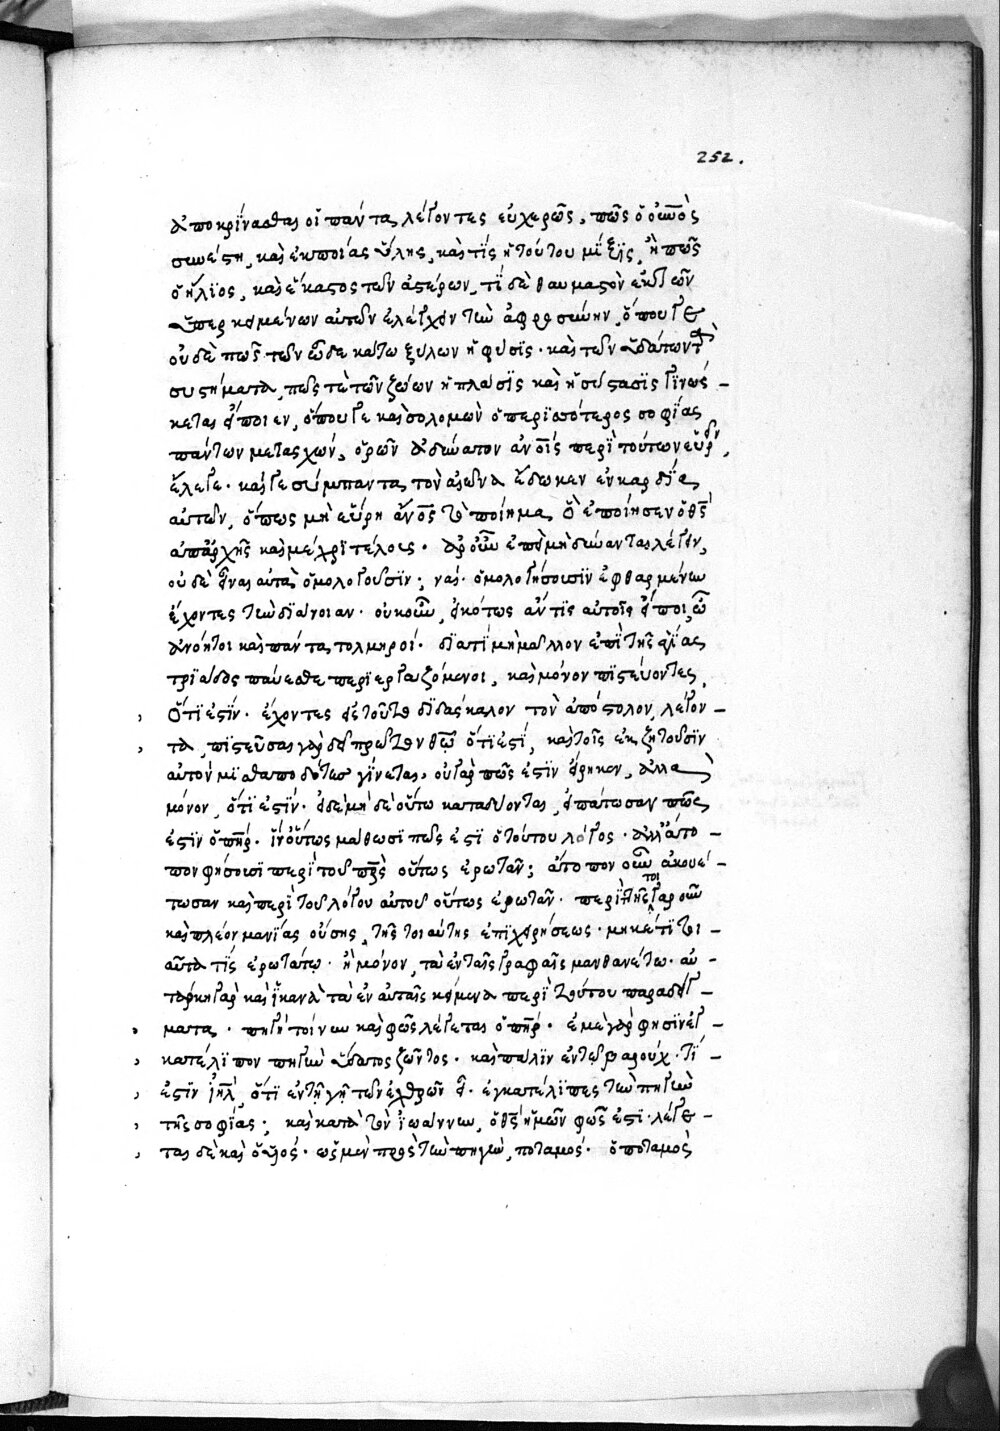 252.
ἀποκρίνασθαι οἱ πάντα λέγοντες εὐχερῶς, πῶς ὁ οὐνὸς
συνέστη, καὶ ἐκ ποίας ὕλης, καὶ τίς ἡ τούτου μίξις, ἢ πῶς
ὁ ἥλιος, καὶ ἕκαστος τῶν ἀστέρων, τί δὲ θαυμαστὸν ἐκ τῶν
ὑπερκειμένων αὐτῶν ἐλέγχειν τὴν ἀφροσύνην, ὅπου γε
οὐδὲ πῶς τῶν ὧδε κάτω ξύλων ἡ φύσις. καὶ τῶν ὑδάτων τὰ
συστήματα, πῶς τὲ τῶν ζώων ἡ πλάσις καὶ ἡ σύστασις γινώσ-
κεται εἴποιεν, ὅπου γε καὶ σολομὼν ὁ περισσότερος σοφίας
πάντων μετασχών, ὁρῶν ἀδύνατον ἀνοις περὶ τούτων εὑρεῖν,
ἔλεγε. καί γε σύμπαντα τὸν αἰῶνα ἔδωκεν ἐν καρδίᾳ
αὐτῶν, ὅπως μὴ εὕρῃ ἄνος τὸ ποίημα, ὃ ἐποίησεν ὁ θς
ἀπ' ἀρχῆς καὶ μέχρι τέλους. ἆρ' οὖν ἐπὰν μὴ δύνανται λέγειν,
οὐδὲ εἶναι αὐτὰ ὁμολογοῦσιν; ναί. ὁμολογήσουσιν ἐφθαρμένην
ἔχοντες τὴν διάνοιαν. οὐκοῦν, εἰκότως ἄν τις αὐτοῖς εἴποι, ὦ
ἀνόητοι καὶ πάντα τολμηροί. διατί μὴ μᾶλλον ἐπὶ τῆς ἁγίας
τριάδος παύεσθε περιεργαζόμενοι, καὶ μόνον πιστεύοντες,
ὅτι ἐστίν. ἔχοντες εἰς τοῦτο διδάσκαλον τὸν ἀπόστολον, λέγον-
τα, πιστεῦσαι γὰρ δεῖ πρῶτον θῶ ὅτι ἐστί, καὶ τοῖς ἐκζητοῦσιν
αὐτὸν μισθαποδότης γίνεται. οὐ γὰρ πῶς ἐστὶν εἴρηκεν, ἀλλὰ
μόνον, ὅτι ἐστίν. εἰ δὲ μὴ δὲ οὕτω καταδύονται, εἰπάτωσαν πῶς
ἐστὶν ὁ πηρ. ἵν' οὕτως μάθωσι πῶς ἐστὶ ὁ τούτου λόγος. ἀλλ' ἄτο-
πον φήσουσι περὶ τοῦ πρς οὕτως ἐρωτᾶν; ἄτοπον οὖν ἀκουέ-
τωσαν καὶ περὶ τοῦ λόγου αὐτοῦ οὕτως ἐρωτᾶν. περιττῆς τοιγαροῦν
καὶ πλέον μανίας οὔσης, τῆς τοιαύτης ἐπιχειρήσεως. μηκέτι τοι
αῦτά τίς ἐρωτάτω. ἢ μόνον, τὰ ἐν ταῖς γραφαῖς μανθανέτω. αὐ-
τάρκη γὰρ καὶ ἱκανὰ τὰ ἐν αὐταῖς κείμενα περὶ τούτου παραδείγ-
ματα. πηγὴ τοίνυν καὶ φῶς λέγεται ὁ πηρ. ἐμὲ γάρ φησιν ἐγ-
κατέλιπον πηγὴν ὕδατος ζῶντος. καὶ πάλιν ἐν τῷ βαρούχ. τί
ἐστὶν ιηλ, ὅτι ἐν τῇ γῇ τῶν ἐχθρῶν εἶ. ἐγκατέλιπες τὴν πηγὴν
τῆς σοφίας; καὶ κατὰ τὸν ἰωάννην, ὁ θς ἡμῶν φῶς ἐστί. λέγε-
ται δὲ καὶ ὁ υἱός. ὡς μὲν πρὸς τὴν πηγὴν, ποταμός. ὁ ποταμὸς